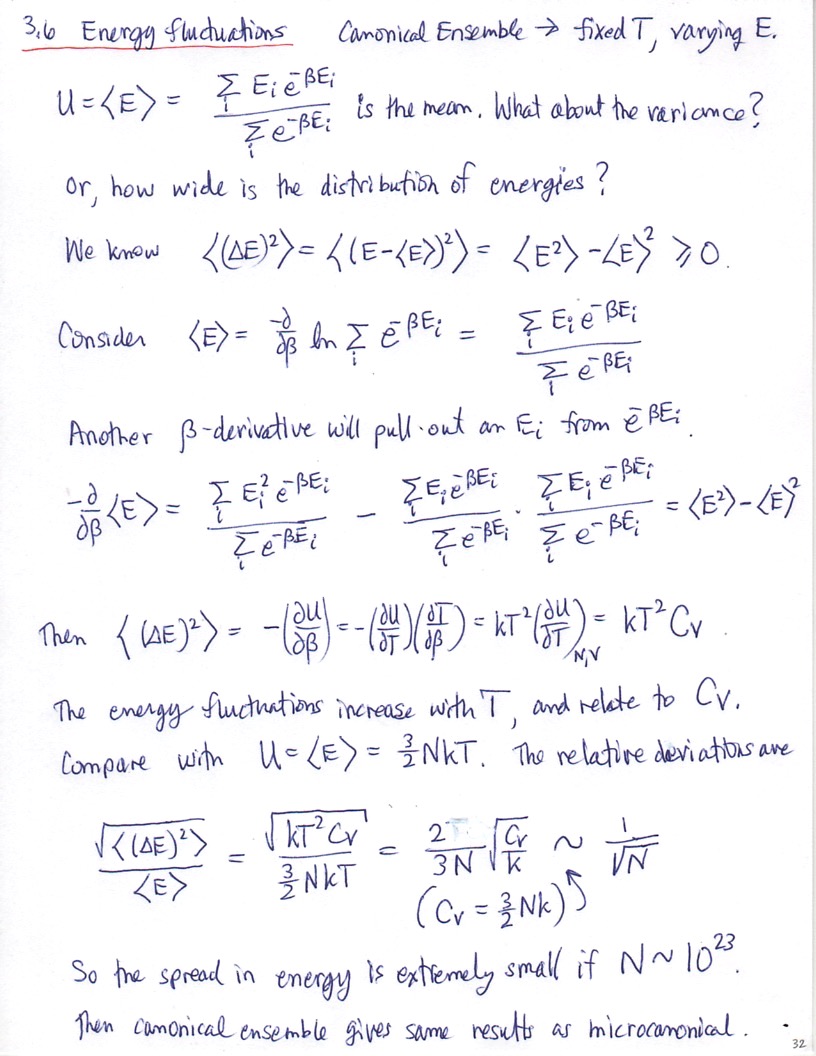 3.6 Energy fluctuations Canonical Ensemble → fixed T, varying E.
U = ⟨E⟩ = \frac{\sum_i E_i e^{-βE_i}}{\sum_i e^{-βE_i}} is the mean. What about the variance?
Or, how wide is the distribution of energies?
We know ⟨(ΔE)²⟩ = ⟨(E-⟨E⟩)²⟩ = ⟨E²⟩ - ⟨E⟩² ⩾ 0.
Consider ⟨E⟩ = \frac{-∂}{∂β} ln \sum_i e^{-βE_i} = \frac{\sum_i E_i e^{-βE_i}}{\sum_i e^{-βE_i}}
Another β-derivative will pull out an E_i from e^{-βE_i}.
\frac{-∂}{∂β}⟨E⟩ = \frac{\sum_i E_i² e^{-βE_i}}{\sum_i e^{-βE_i}} - \frac{\sum_i E_i e^{-βE_i}}{\sum_i e^{-βE_i}} · \frac{\sum_i E_i e^{-βE_i}}{\sum_i e^{-βE_i}} = ⟨E²⟩ - ⟨E⟩²
Then ⟨(ΔE)²⟩ = -(\frac{∂U}{∂β}) = -(\frac{∂U}{∂T})(\frac{∂T}{∂β}) = kT²(\frac{∂U}{∂T})_{N,V} = kT² C_V.
The energy fluctuations increase with T, and relate to C_V.
Compare with U = ⟨E⟩ = \frac{3}{2}NkT. The relative deviations are
\frac{\sqrt{⟨(ΔE)²⟩}}{⟨E⟩} = \frac{\sqrt{kT² C_V}}{\frac{3}{2}NkT} = \frac{2}{3N}\sqrt{\frac{C_V}{k}} ~ \frac{1}{\sqrt{N}}
(C_V = \frac{3}{2}Nk)
So the spread in energy is extremely small if N ~ 10^{23}.
Then canonical ensemble gives same results as microcanonical.
32